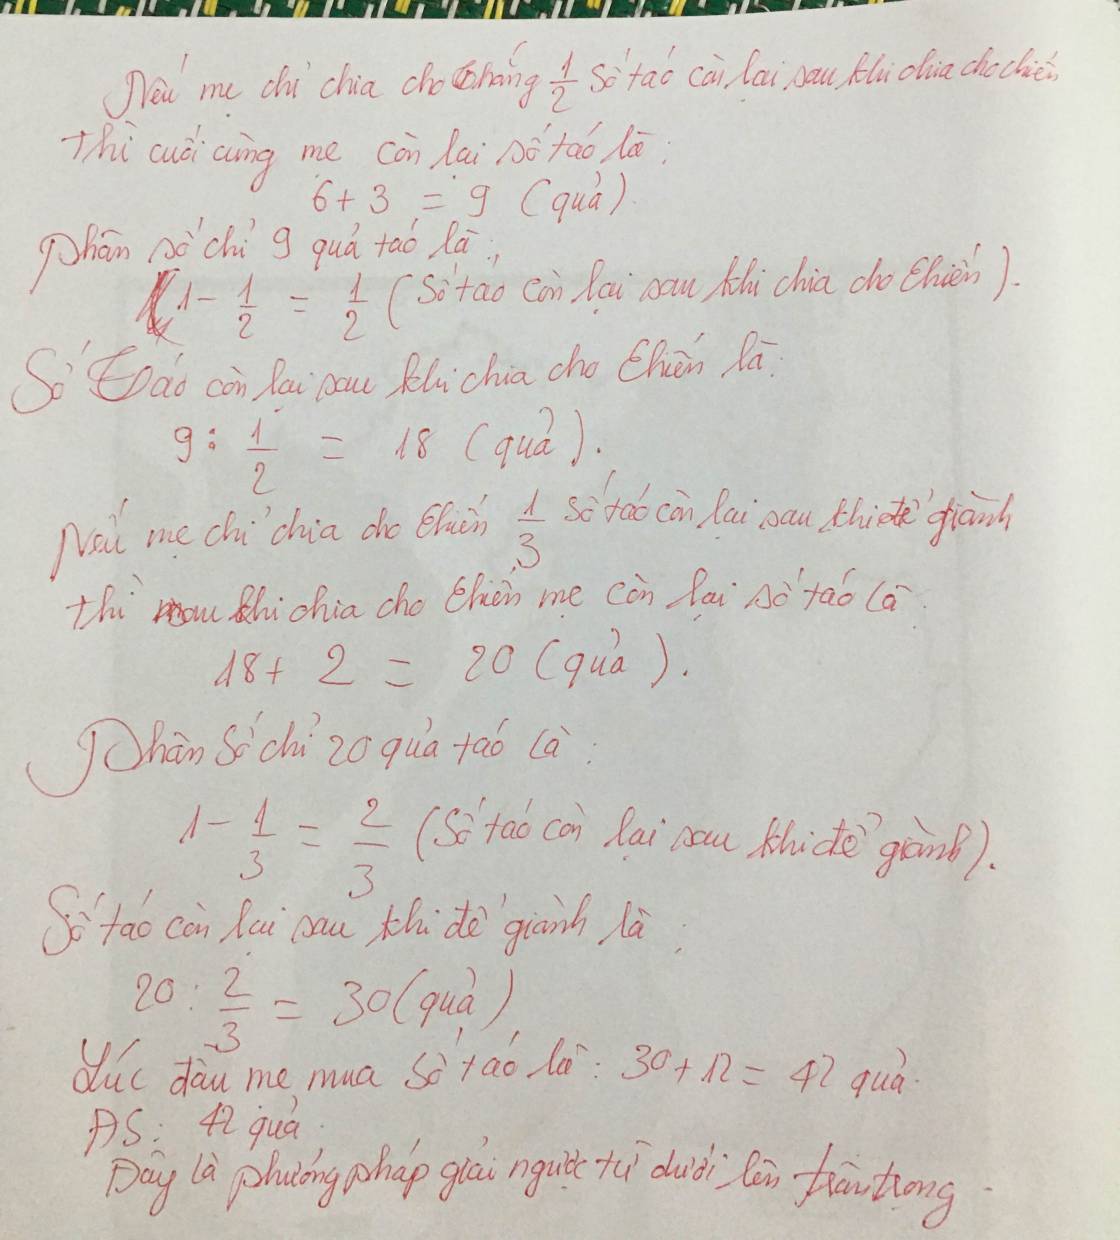 Nếu mẹ chỉ chia cho Thắng 1/2 Số táo còn lại sau khi chia cho chiến
thì cuối cùng mẹ còn lại số táo là:
6 + 3 = 9 (quả)
Phân số chỉ 9 quả táo là:
1 - 1/2 = 1/2 (Số táo còn lại sau khi chia cho Chiến).
Số Táo còn lại sau khi chia cho Chiến là:
9 : 1/2 = 18 (quả).
Nếu mẹ chỉ chia cho Chiến 1/3 Số táo còn lại sau khi để giành
thì sau khi chia cho Chiến mẹ còn lại số táo là:
18 + 2 = 20 (quả).
Phân Số chỉ 20 quả táo là:
1 - 1/3 = 2/3 (Số táo còn lại sau khi để giành).
Số táo còn lại sau khi để giành là:
20 : 2/3 = 30 (quả)
Lúc đầu mẹ mua Số táo là: 30 + 12 = 42 quả.
ĐS: 42 quả.
Đây là phương pháp giải ngược từ dưới lên trân trọng.